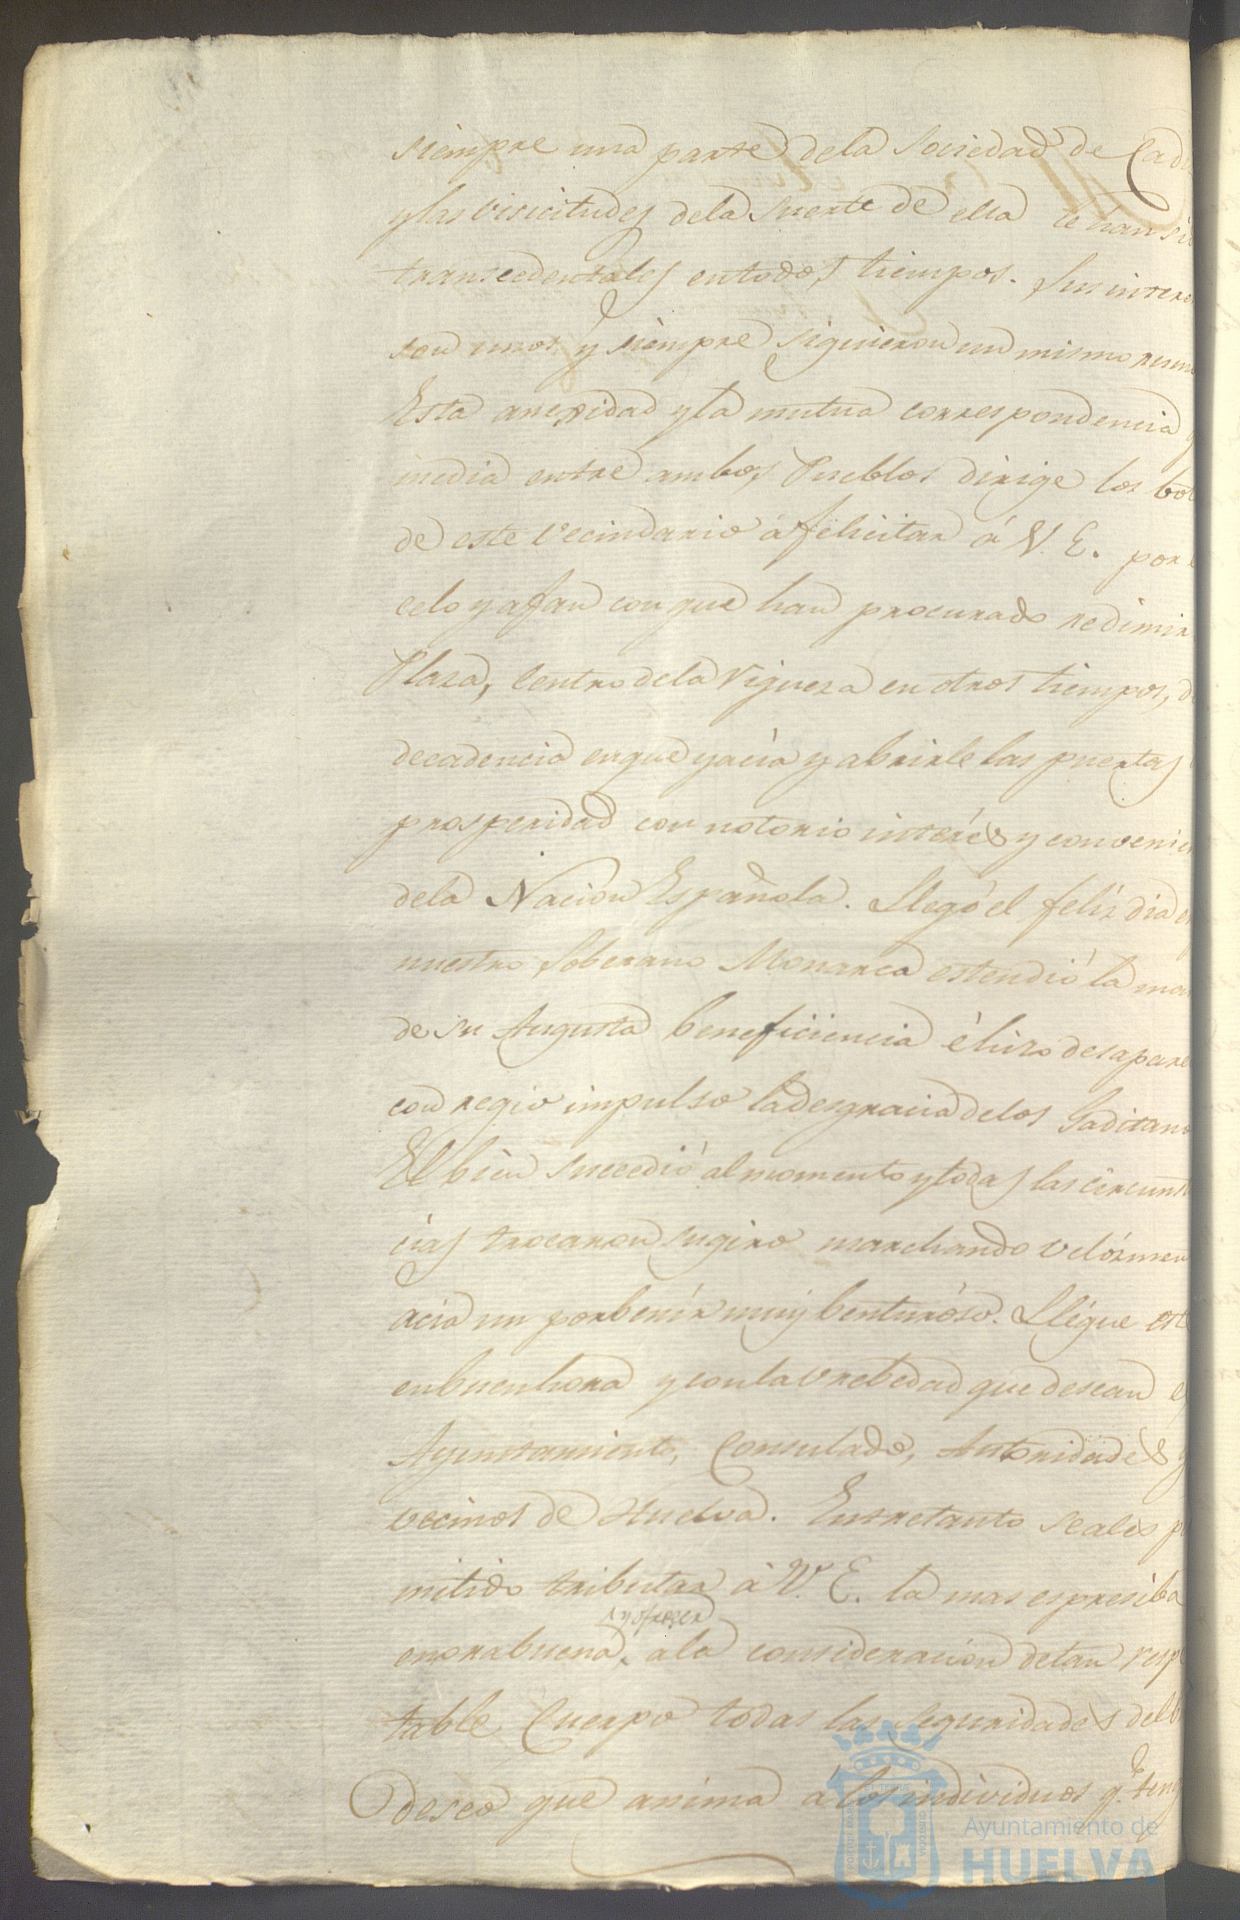 siempre una parte dela Sociedad de Cad
y las visicitudes dela suerte de ella le han si
transcedentales entodos tiempos. Sus intere
son unos y siempre siguieron un mismo rum
Esta anexidad y la mutua correspondencia q
media entre ambos Pueblos dirige los vot
de este vecindario á felicitar á V. E. por
celo y afan con que han procurado redimir
Plaza, Centro dela riqueza en otros tiempos, d
decadencia enque yacia y abrirle las puertas
prosperidad con notorio interés y convenien
dela Nacion Española. Llegó el feliz dia e
nuestro Soberano Monarca estendió la man
de su Augusta beneficiencia é hizo desapare
con regio impulso la desgracia delos Gaditano
El bien sucedió al momento y todas las circunst
cias trocaron su giro marchando velózmen
acia un porbenir muy benturóso. Llégue est
enbuenhora y con la vrebedad que desean e
Ayuntamiento, Consulado, Autoridades y
vecinos de Huelva. Entretanto seales p
mitido tributar á V. E. la mas espresiba
y ofrecer
enorabuena, ala consideración detan resp
table Cuerpo todas las seguridades del b
deseo que anima á los individuos q.e teng
Ayuntamiento de
HUELVA